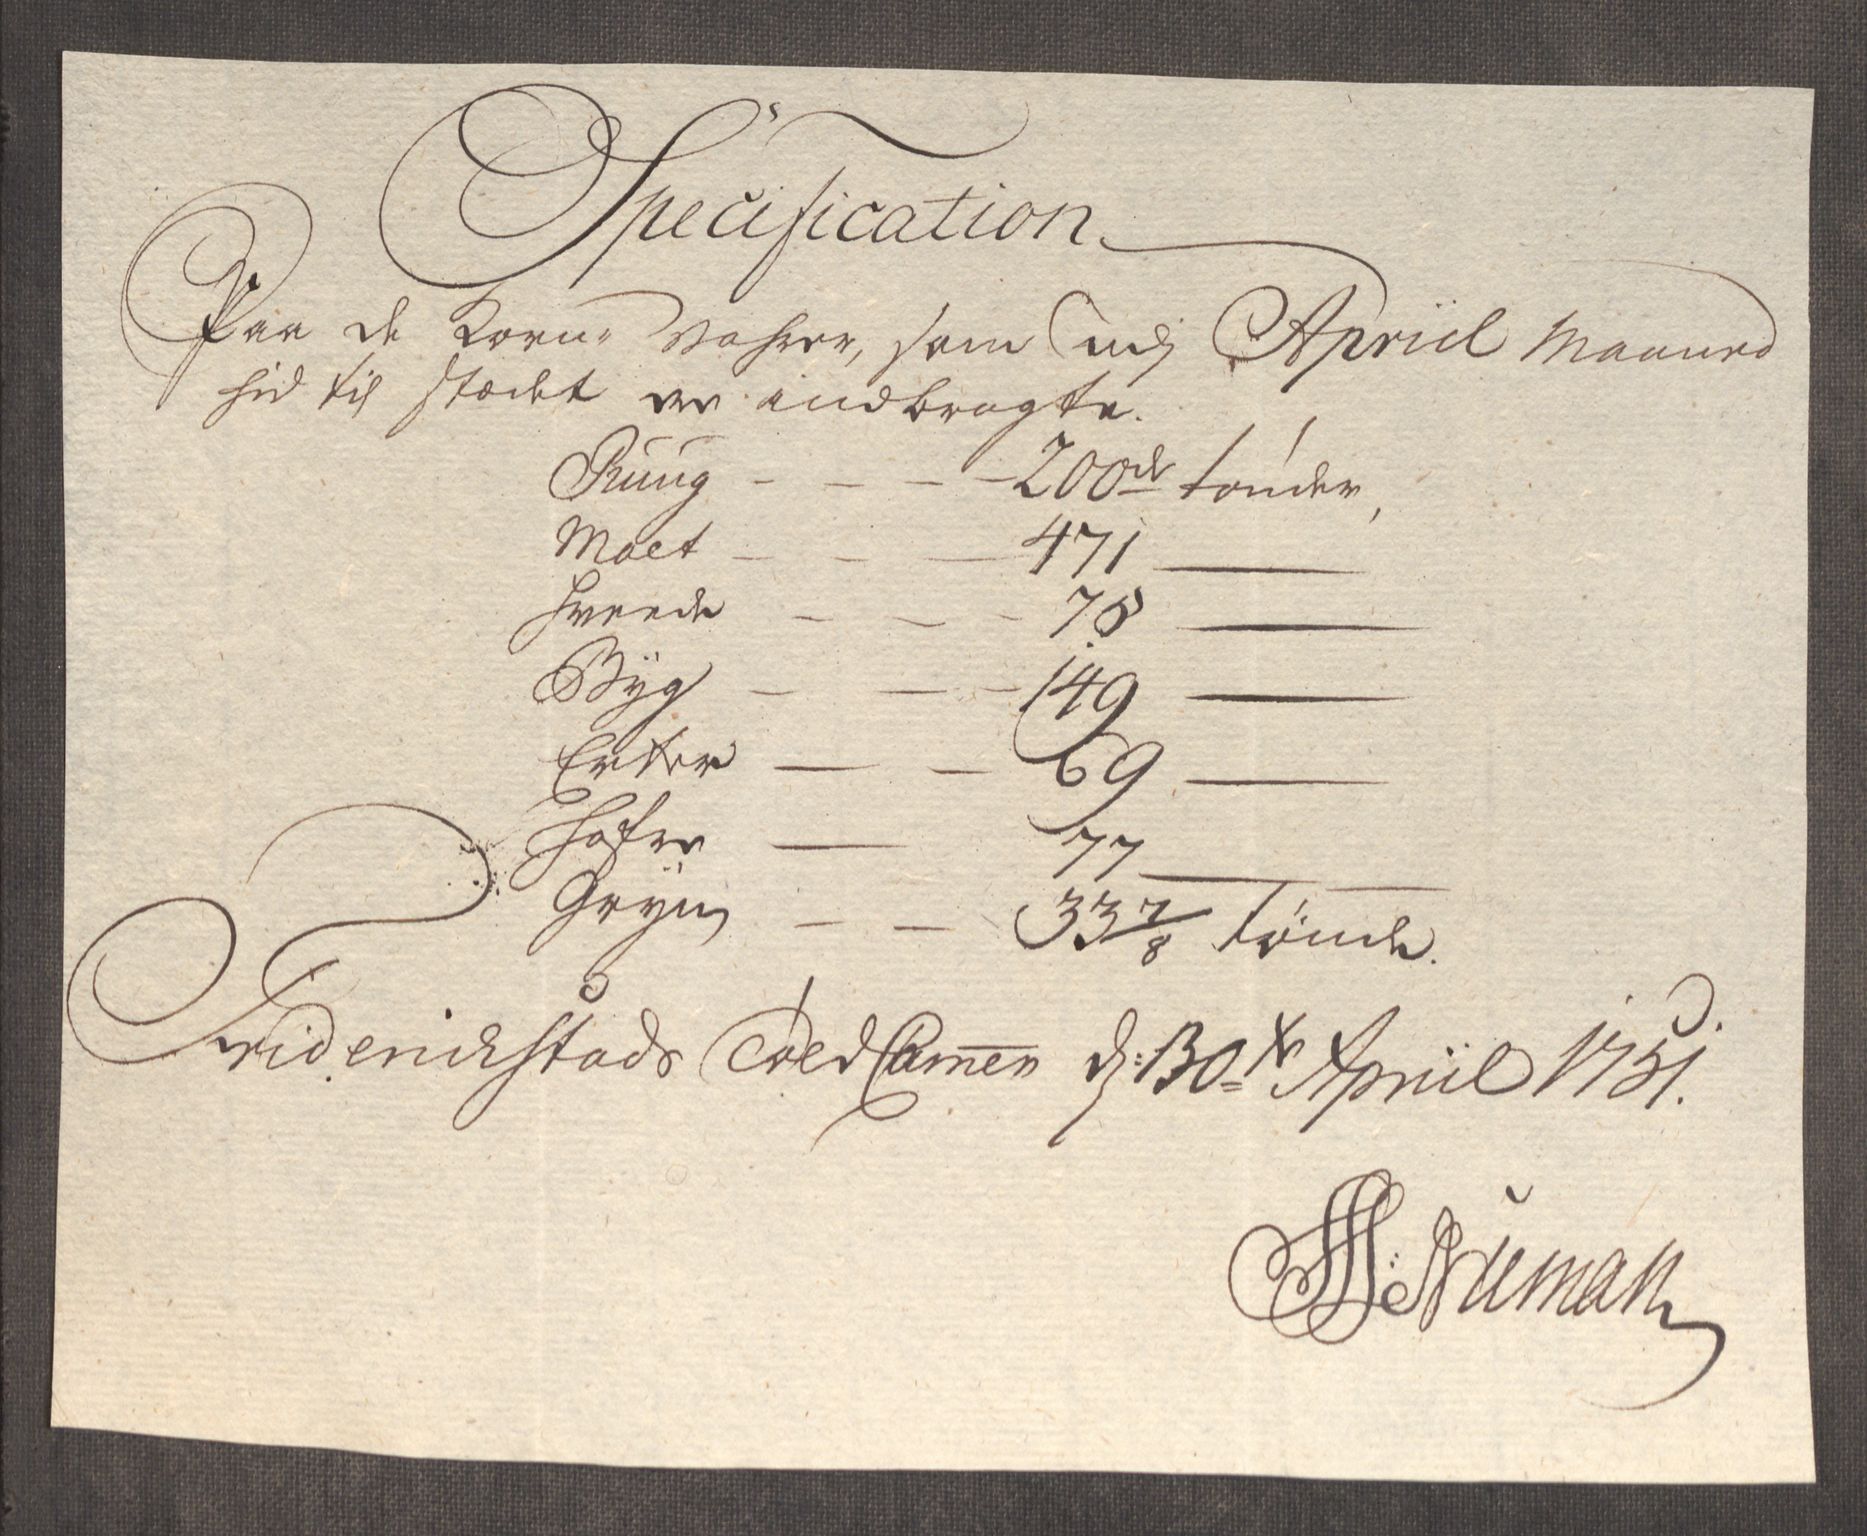 Specification
Paa de Korn- Vahrer, som udj Apriil Maaned
hid til stædet er indbragte.
Ruug - - - - 200de tønder,
Malt - - - 471 ———
Hveede - - - 78 ———
Bÿg - - - 149 ———
Erter — — 69 ———
Hafre — 77 ———
Grÿn - - 33 7/8 tønde.
Friderichstads Told Cammer d: 30te Apriil 1751.
Numan